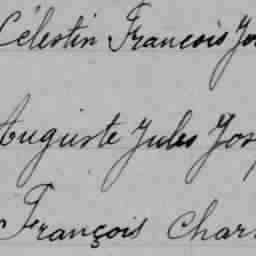 Célestin François Jos
Auguste Jules Jos
François Char